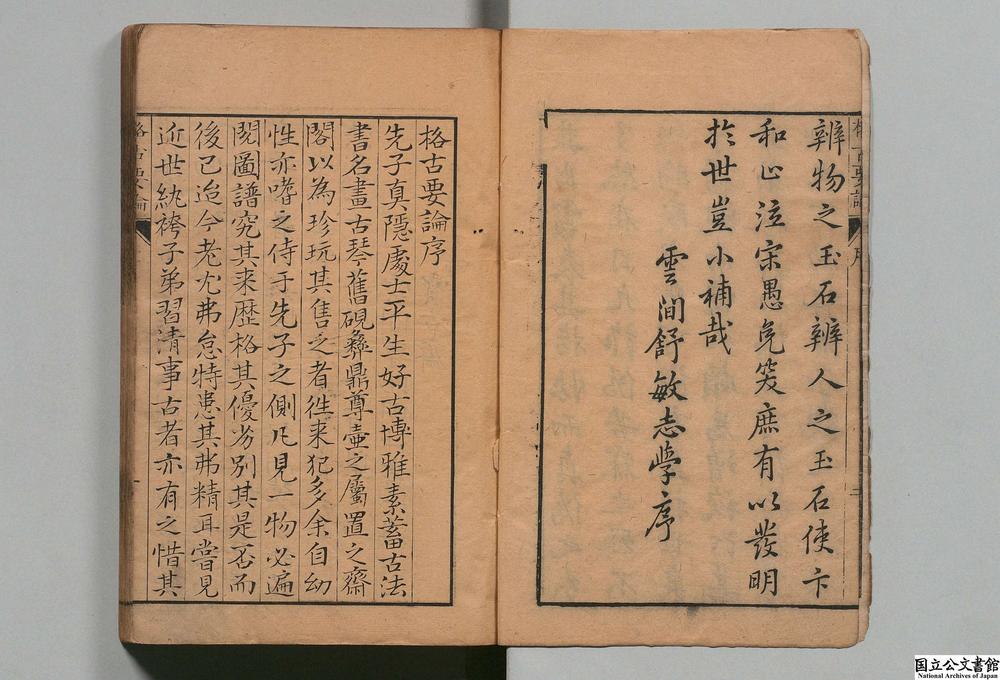 辨物之玉石辨人之玉石使卞
和止泣宋愚免笑庶有以發明
於世豈小補哉
雲間舒敏志學序
格古要論序
先子真隱處士平生好古博雅素蓄古法
書名畫古琴舊硯彝鼎尊壺之屬置之齋
閣以為珍玩其售之者徃来犯多余自幼
性亦嗜之侍于先子之側凢見一物必遍
閱圖譜究其来歷格其優劣別其是否而
後已迨今老尤弗怠特患其弗精耳嘗見
近世紈袴子弟習清事古者亦有之惜其
格古要論
国立公文書館
National Archives of Japan